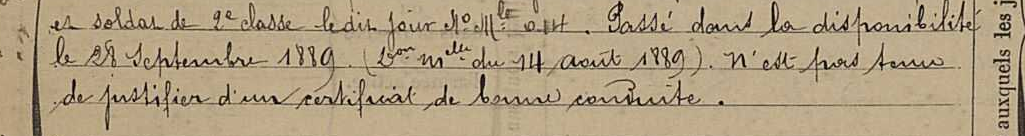 et soldat de 2e classe le dit jour No Mle 914. Passé dans la disponibilité
le 28 Septembre 1889. (Don mlle du 14 août 1889). N'est pas tenu
de justifier d'un certificat de bonne conduite.
auxquels les j